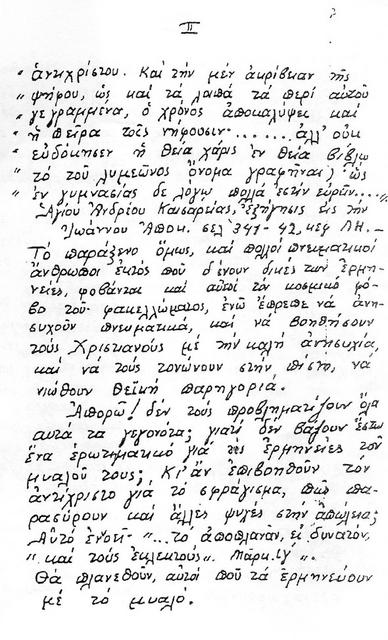 II
„ ἀντιχρίστου. Καί τήν μέν ἀκρίβειαν τῆς
„ ψήφου, ὡς καί τά λοιπά τά περί αὐτοῦ
„ γεγραμμένα, ὁ χρόνος ἀποκαλύψει καί
„ ἡ πεῖρα τοῖς νήφουσιν....... ἀλλ' οὐκ
„ εὐδόκησεν ἡ θεία χάρις ἐν θεία βίβλω
„ τό τοῦ λυμεῶνος ὄνομα γραφῆναι; ὡς
„ ἐν γυμνασίας δε λόγω πολλά ἐστιν εὑρεῖν....„
Ἁγίου Ἀνδρέου Καισαρείας, ἐξήγησις εἰς τήν
Ἰωάννου Ἀποκ. σελ 341-42, κεφ ΛΗ.—
Τό παράξενο ὅμως, καί πολλοί πνευματικοί
ἄνθρωποι ἐκτός πού δίνουν δικές των ἑρμη-
νείες, φοβάνται καί αὐτοί τόν κοσμικό φό-
βο τοῦ φακελλώματος, ἐνῶ ἔπρεπε νά ἀνη-
συχοῦν πνευματικά, καί νά βοηθήσουν
τούς Χριστιανούς μέ τήν καλή ἀνησυχία,
καί νά τούς τονώνουν στήν πίστη, νά
νιώθουν θεϊκή παρηγοριά.
Ἀπορῶ! δέν τούς προβληματίζουν ὅλα
αὐτά τα γεγονότα; γιατί δέν βάζουν ἔστω
ἕνα ἐρωτηματικό γιά τίς ἑρμηνείες τοῦ
μυαλοῦ τους; Κι' ἄν ἐπιβοηθοῦν τόν
ἀντίχριστο γιά τό σφράγισμα, πῶς πα-
ρασύρουν καί ἄλλες ψυχές στήν ἀπώλεια;
Αὐτό ἐνοεῖ- „...τό ἀποπλανᾶν, εἰ δυνατόν,
„ καί τούς ἐκλεκτούς„. Μάρκ. ιγ „.
Θά πλανεθοῦν, αὐτοί πού τά ἑρμηνεύουν
μέ τό μυαλό.